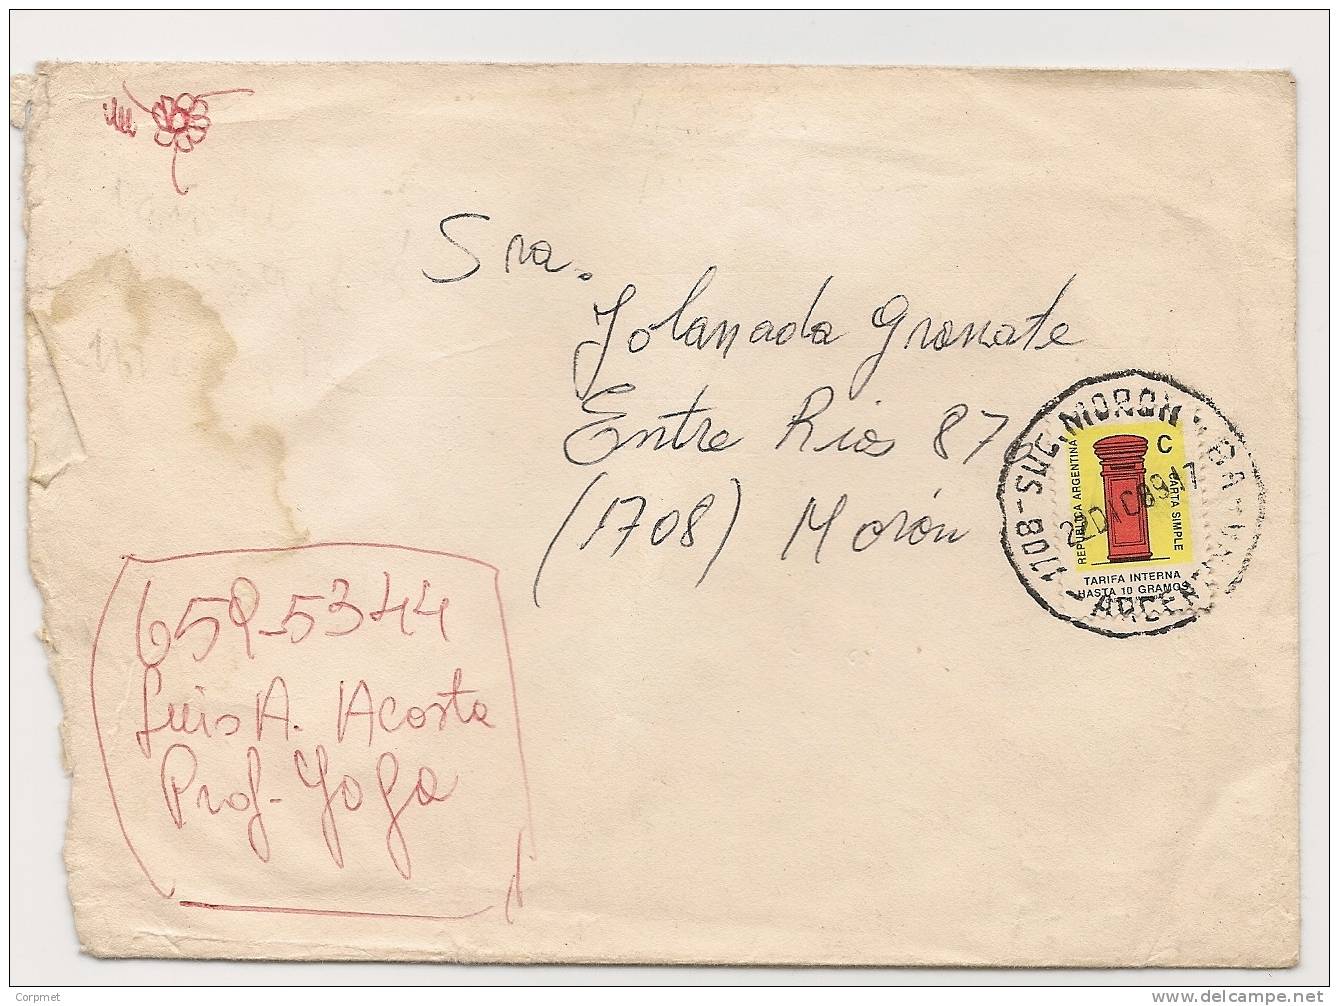 Sra.
Yolanada Granate
Entre Rios 878
(1708) Morón
REPUBLICA ARGENTINA
C
CARTA SIMPLE
TARIFA INTERNA
HASTA 10 GRAMOS
1708-SUC. MORON
22 DIC 89 17
659-5344
Luis A. Acosta
Prof. Yoga
Corpmet
www.delcampe.net